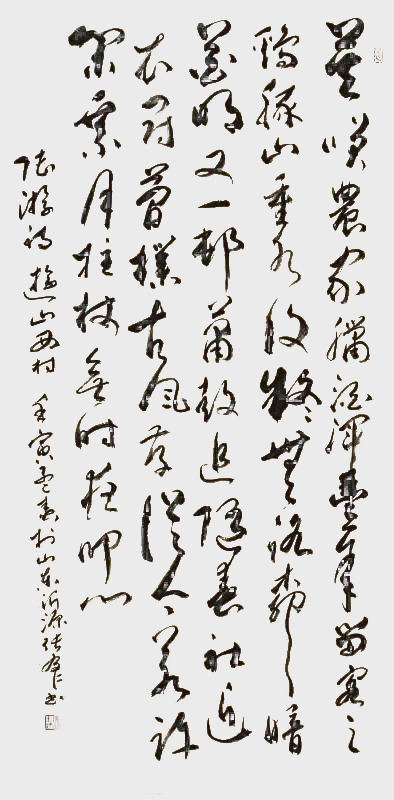 莫咲農家臘酒渾豐年留客足
鷄豚山重水複疑無路柳暗
花明又一邨簫鼓追隨春社近
衣冠簡樸古風存從今若許
閑乘月拄杖無時夜叩門
陸游詩遊山西村 壬寅孟春於山東沂源書